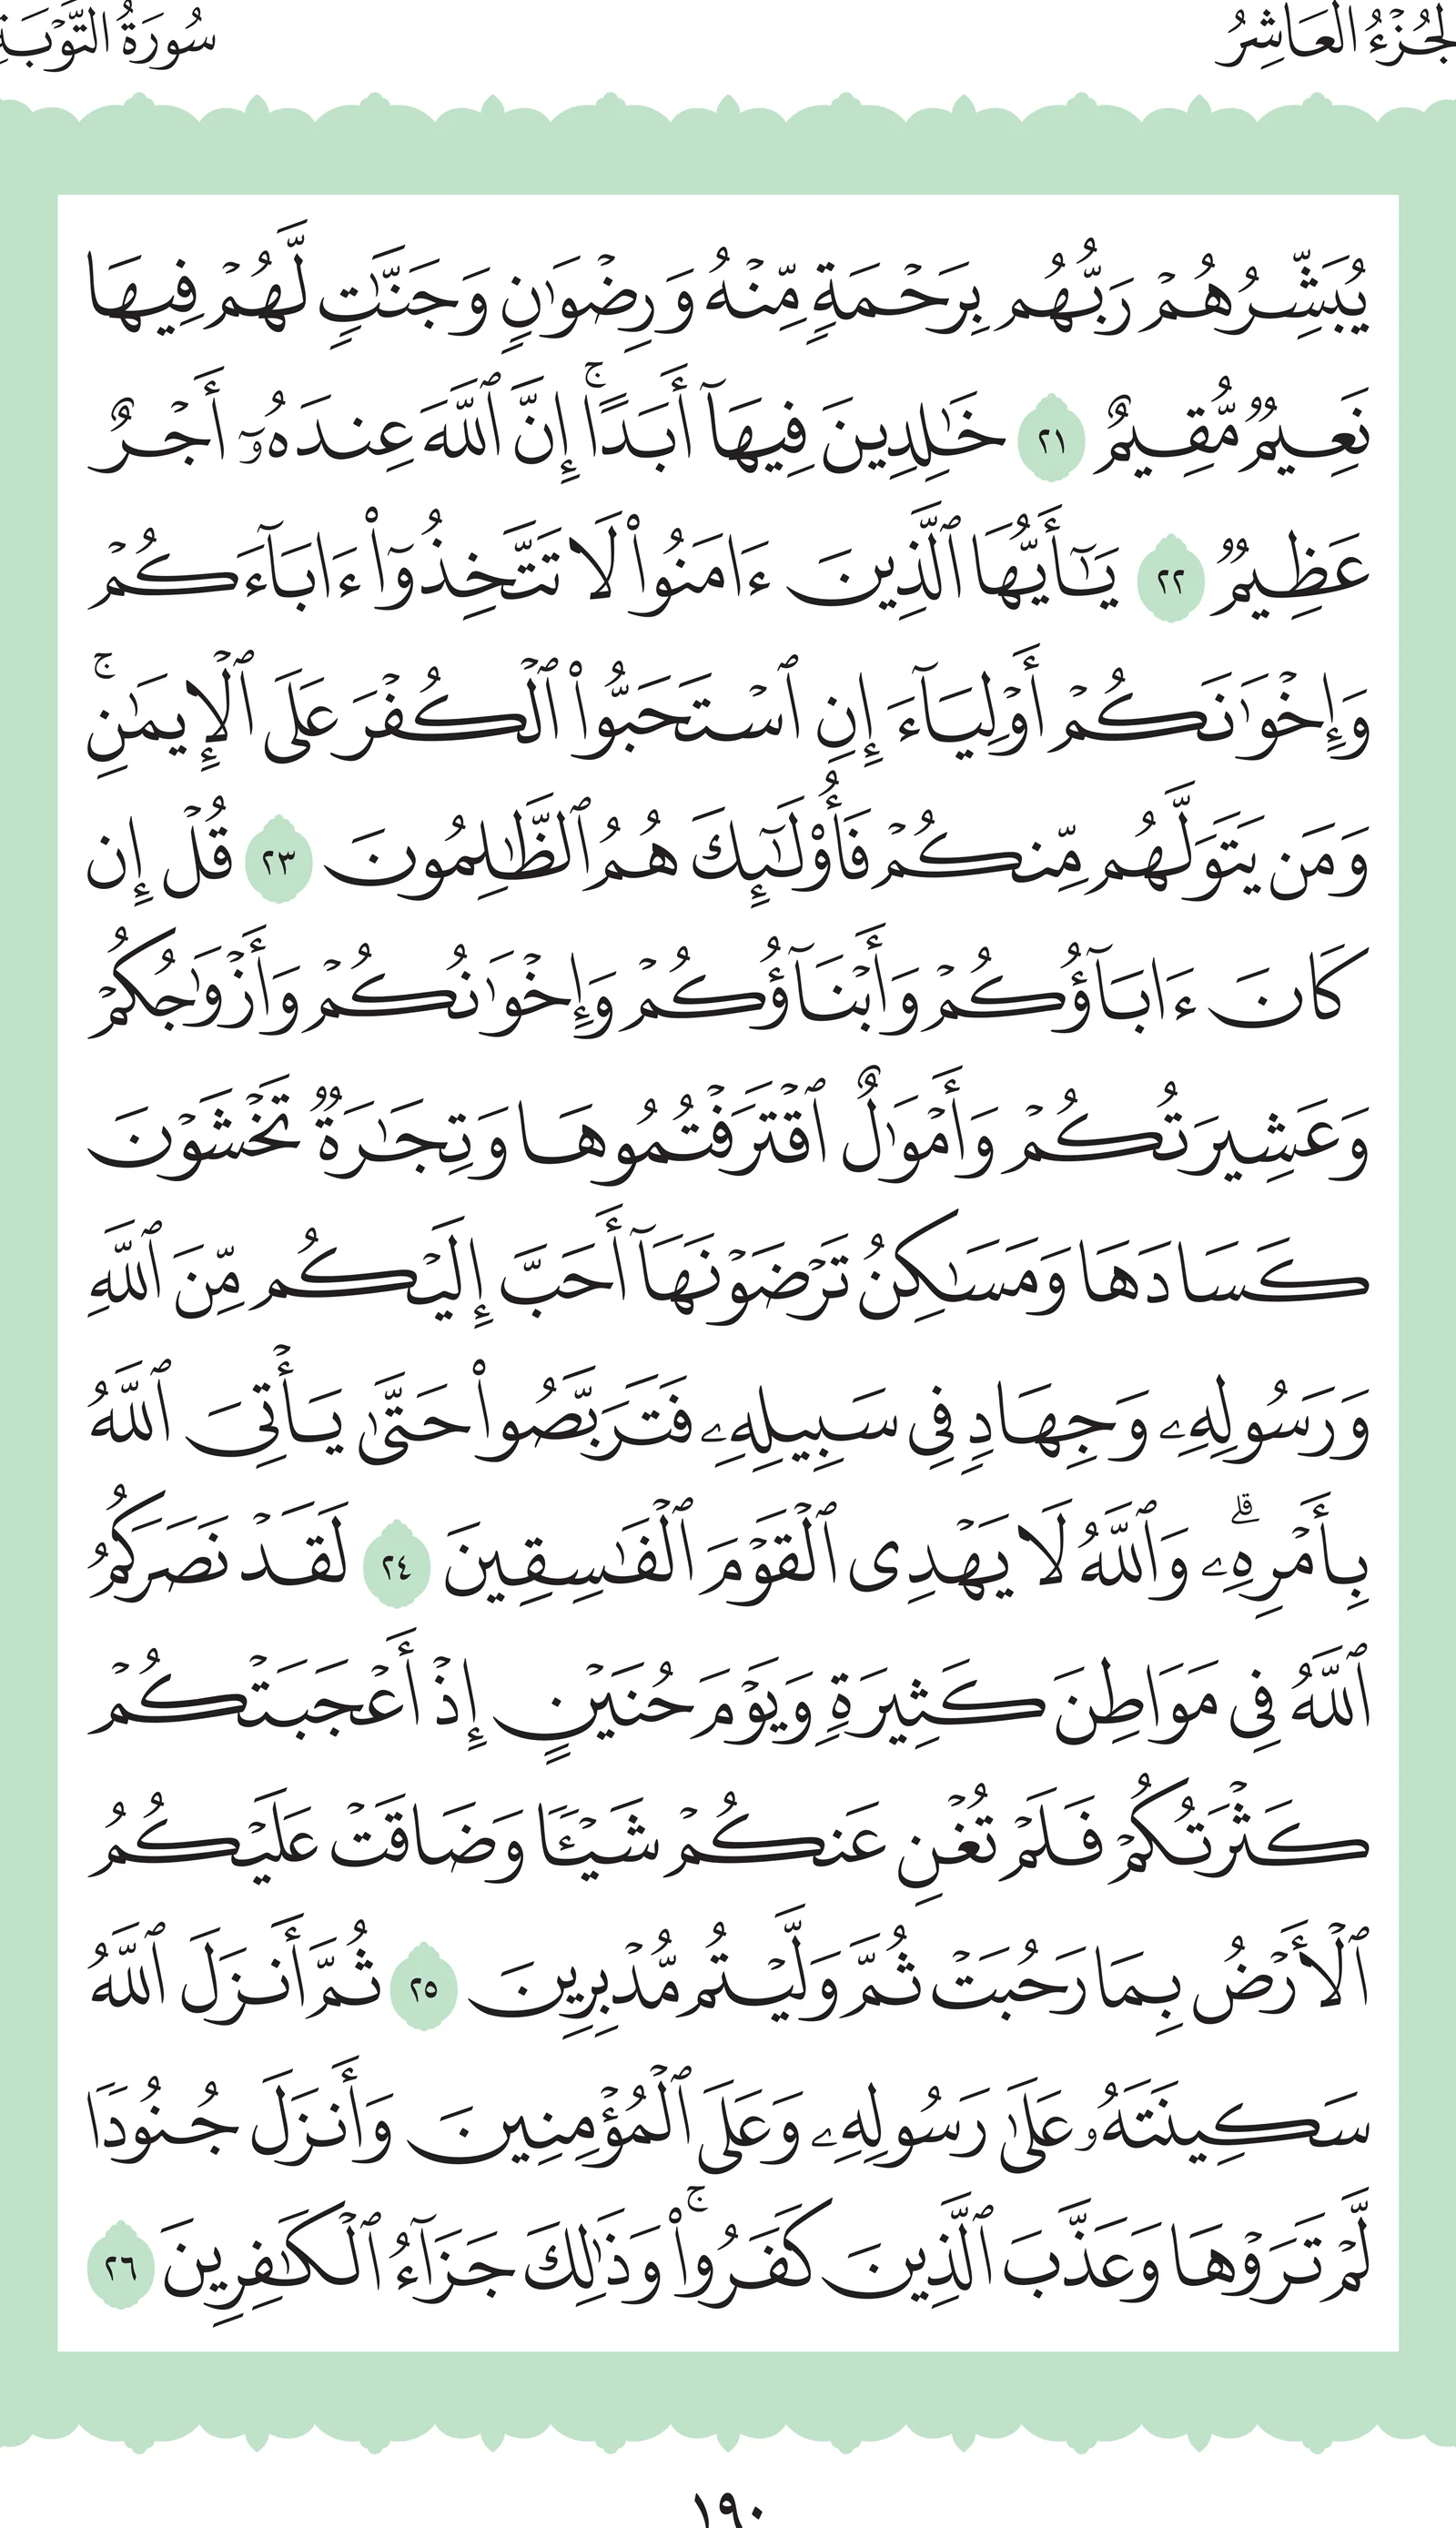 الجُزْءُ العَاشِرُ
سُورَةُ التَّوْبَةِ
يُبَشِّرُهُمْ رَبُّهُم بِرَحْمَةٍ مِّنْهُ وَرِضْوَٰنٍ وَجَنَّٰتٍ لَّهُمْ فِيهَا
نَعِيمٌ مُّقِيمٌ ٢١ خَٰلِدِينَ فِيهَآ أَبَدًاۚ إِنَّ ٱللَّهَ عِندَهُۥٓ أَجْرٌ
عَظِيمٌ ٢٢ يَٰٓأَيُّهَا ٱلَّذِينَ ءَامَنُوا۟ لَا تَتَّخِذُوٓا۟ ءَابَآءَكُمْ
وَإِخْوَٰنَكُمْ أَوْلِيَآءَ إِنِ ٱسْتَحَبُّوا۟ ٱلْكُفْرَ عَلَى ٱلْإِيمَٰنِۚ
وَمَن يَتَوَلَّهُم مِّنكُمْ فَأُو۟لَٰٓئِكَ هُمُ ٱلظَّٰلِمُونَ ٢٣ قُلْ إِن
كَانَ ءَابَآؤُكُمْ وَأَبْنَآؤُكُمْ وَإِخْوَٰنُكُمْ وَأَزْوَٰجُكُمْ
وَعَشِيرَتُكُمْ وَأَمْوَٰلٌ ٱقْتَرَفْتُمُوهَا وَتِجَٰرَةٌ تَخْشَوْنَ
كَسَادَهَا وَمَسَٰكِنُ تَرْضَوْنَهَآ أَحَبَّ إِلَيْكُم مِّنَ ٱللَّهِ
وَرَسُولِهِۦ وَجِهَادٍ فِى سَبِيلِهِۦ فَتَرَبَّصُوا۟ حَتَّىٰ يَأْتِىَ ٱللَّهُ
بِأَمْرِهِۦۗ وَٱللَّهُ لَا يَهْدِى ٱلْقَوْمَ ٱلْفَٰسِقِينَ ٢٤ لَقَدْ نَصَرَكُمُ
ٱللَّهُ فِى مَوَاطِنَ كَثِيرَةٍ وَيَوْمَ حُنَيْنٍ إِذْ أَعْجَبَتْكُمْ
كَثْرَتُكُمْ فَلَمْ تُغْنِ عَنكُمْ شَيْـًٔا وَضَاقَتْ عَلَيْكُمُ
ٱلْأَرْضُ بِمَا رَحُبَتْ ثُمَّ وَلَّيْتُم مُّدْبِرِينَ ٢٥ ثُمَّ أَنزَلَ ٱللَّهُ
سَكِينَتَهُۥ عَلَىٰ رَسُولِهِۦ وَعَلَى ٱلْمُؤْمِنِينَ وَأَنزَلَ جُنُودًا
لَّمْ تَرَوْهَا وَعَذَّبَ ٱلَّذِينَ كَفَرُوا۟ۚ وَذَٰلِكَ جَزَآءُ ٱلْكَٰفِرِينَ ٢٦
١٩٠